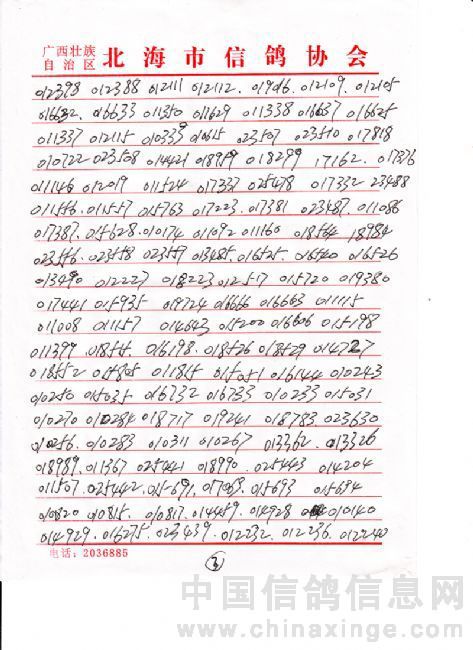 广西壮族
自治区 北海市信鸽协会
012398 012388 012111 012112. 012109. 012105
016632. 016633 011350 011629 011338 016637 016625
011337 012115 010339 023507 023510 017818
010722 023508 014421 018299 17162. 17376
011146 012019 011524 017337 025478 017332 23488
011556. 011557 015763 017223. 017381 023487. 011086
017387. 015628. 010174 011092 011160 018564 18984
023556. 023558 023559 013485. 016525. 016540 016526
013490 012227 018223 012517 015720 019380
017441 015935 019724 016666 016663 011115
011008 011157 014643 015200 016606 015198
011399 018545. 016198. 018526 018529 014727
018552 015805 011815 015051 016144 010243
010250 015035 016732 016733 010233 015031
010270 010284 018717 019241 018783. 023630
010256. 010283 010311 010267 013362. 013326
018989. 011367 025441 018990. 025443 014204
011507. 025442. 015691. 017069. 015693 015694
010820 010815. 010817. 014459. 014928 010140
014929. 016275. 023439. 012232. 012236. 012240
电话：2036885
③
中国信鸽信息网
www.chinaxinge.com